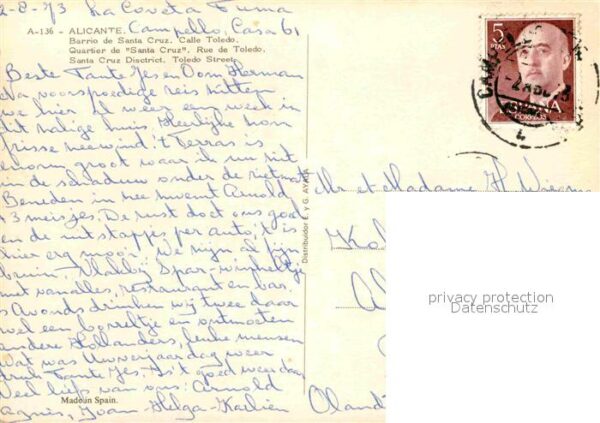 2-8-73 La Coveta Fuma
Campello, Casa 61
A-136 - ALICANTE.
Barrio de Santa Cruz. Calle Toledo.
Quartier de "Santa Cruz". Rue de Toledo.
Santa Cruz Disctrict. Toledo Street.
Beste Tante Jes en Oom Herman
Na voorspoedige reis zitten
we hier al weer een week in
dit huis. Heerlijke zon
frisse zeewind 't Terras is
enorm groot waar ik nu zit
in de schaduw onder de rietmat
Beneden in zee zwemt Arnold
+ 3 meisjes. De rust doet ons goed
en de uitstapjes per auto, 't is
hier erg mooi. We zijn al fijn
bruin. Vlakbij Spar-winkeltje
met vanalles, restaurant en bar.
's Avonds drinken wij twee daar
wel een borreltje en ontmoeten
andere Hollanders, leuke mensen
wat was Uw verjaardag weer
druk Tante Jes. Is 't goed weer daar
Veel liefs van ons: Arnold
Agnès, Joan Helga-Karlien
Made in Spain.
Distribuidor E. y G. AYALA
5
PTAS
ESPAÑA
CORREOS
Mr et Madame H.
privacy protection
Datenschutz